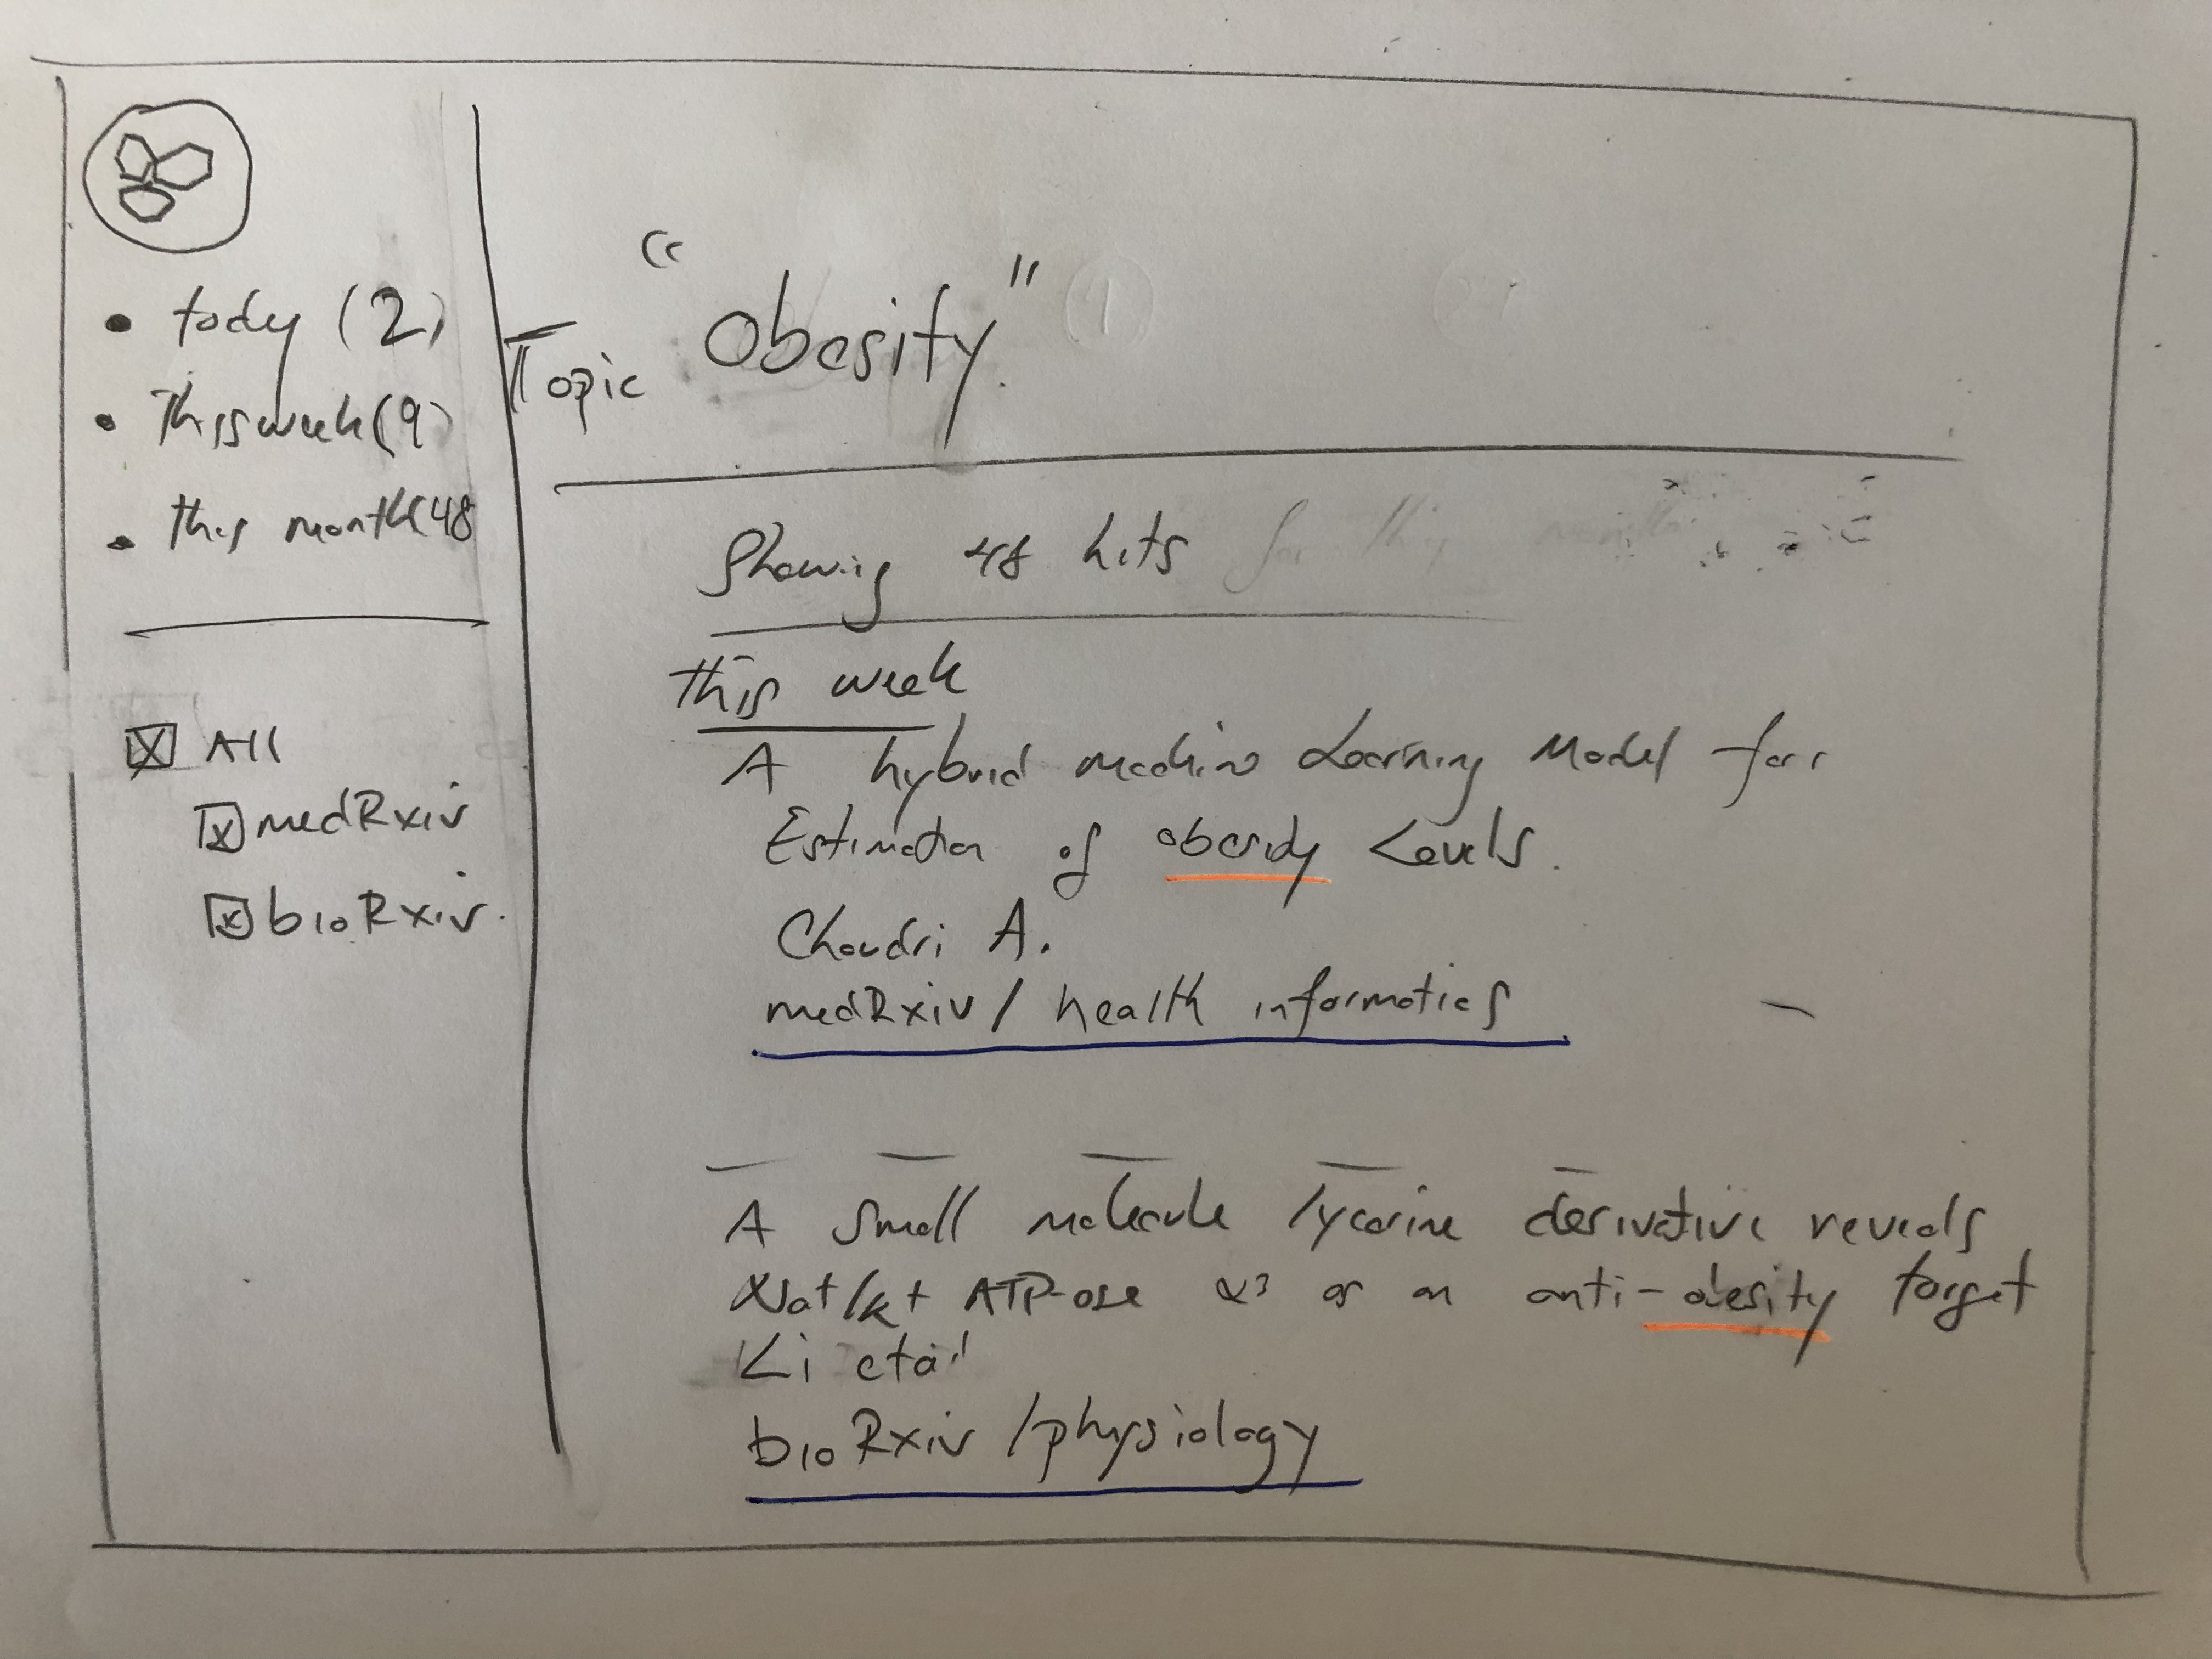 • today (2)
• This week (9)
• this month (48
☒ All
☒ medRxiv
☒ bioRxiv.
Topic "Obesity."
Showing 48 hits
this week
A hybrid machine Learning Model for
Estimation of obesity Levels.
Choudri A.
medRxiv / health informatics
A small molecule lycorine derivative reveals
Na+/k+ ATP-ase α3 as an anti-obesity target
Li etal
bioRxiv / physiology